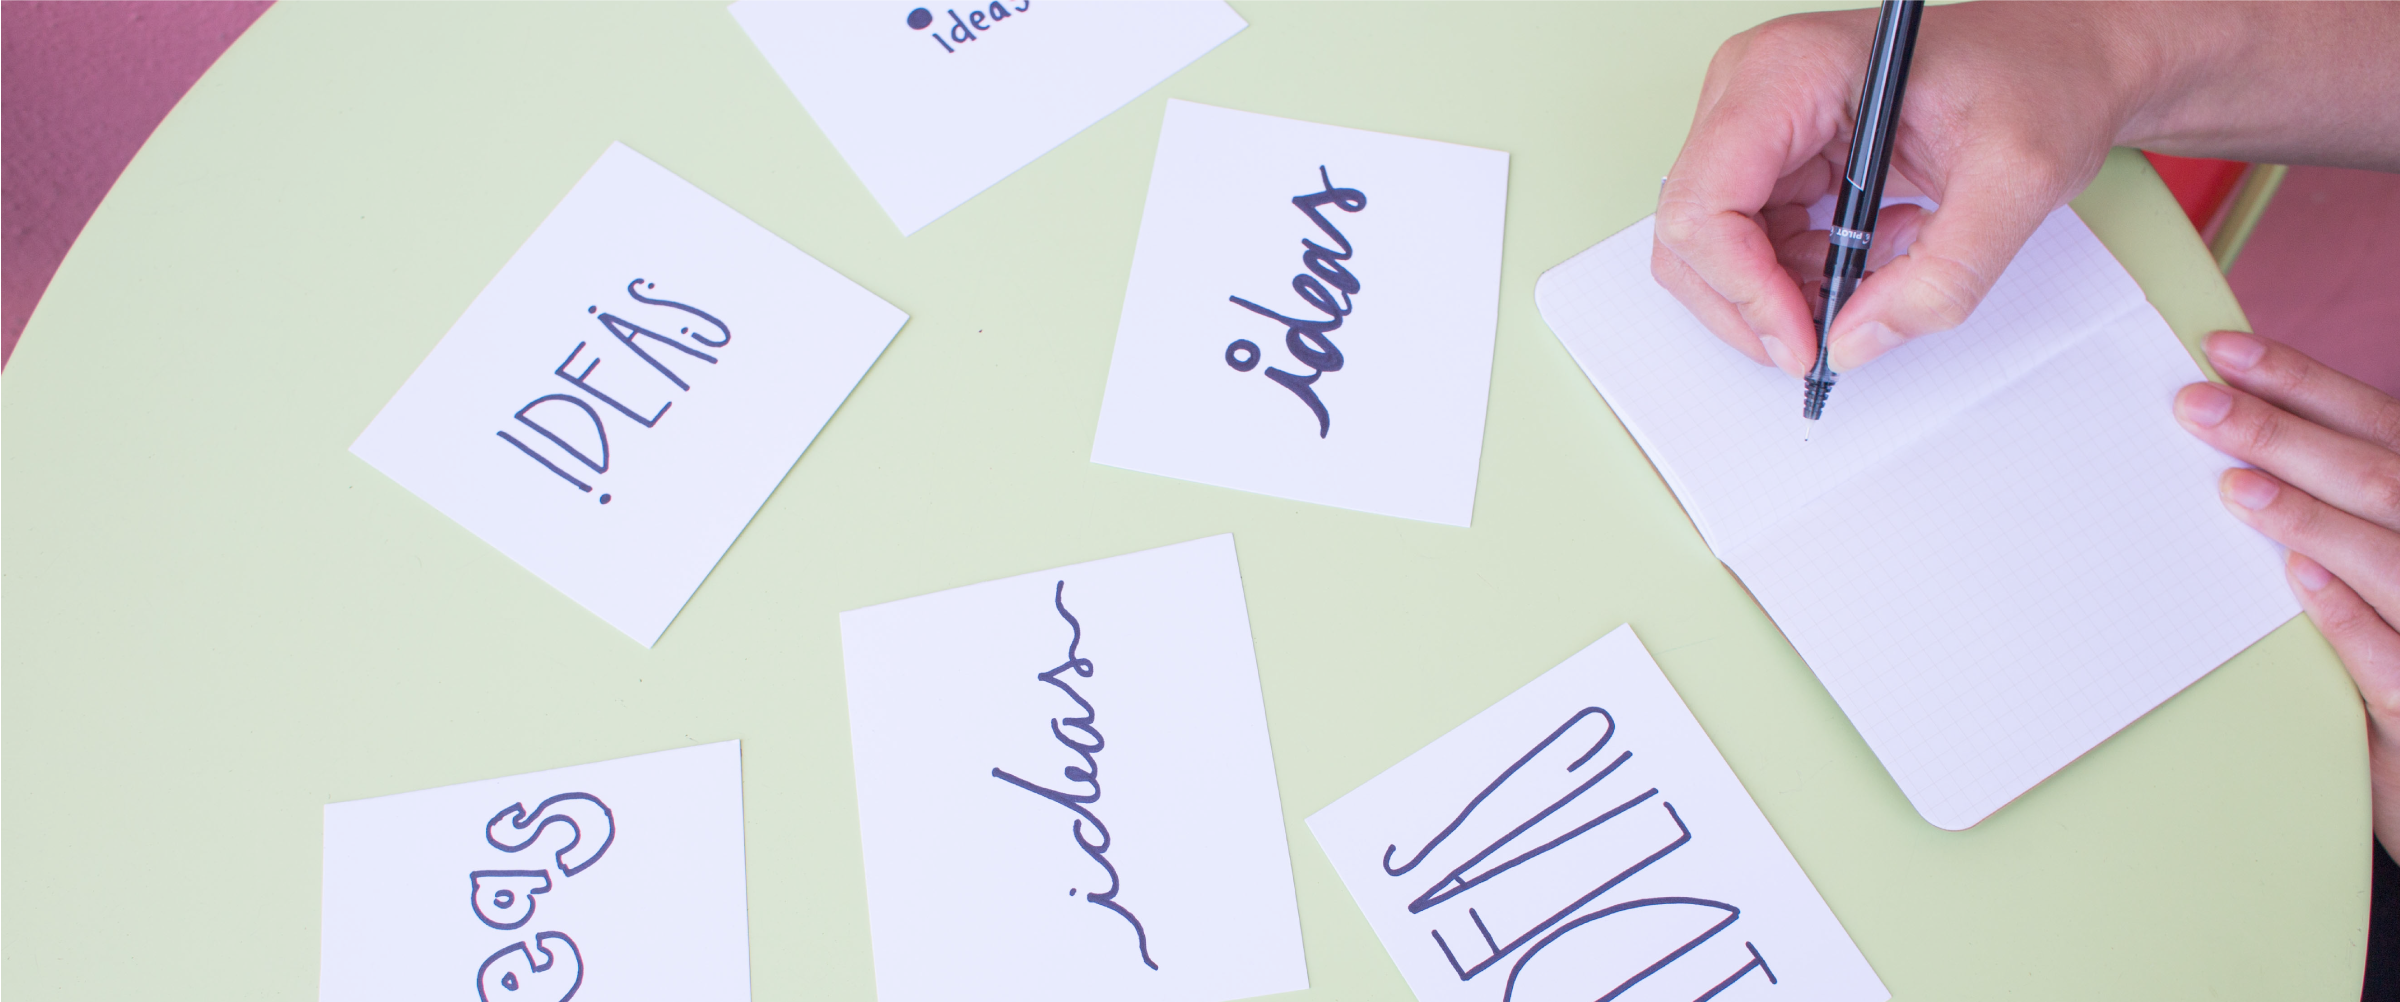 ideas
ideas
IDEAS
PILOT
ideas
IDEAS
eas